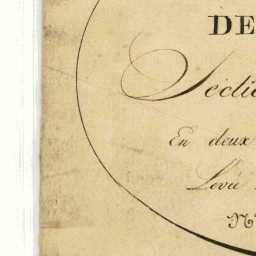 DE
Sectio
En deux
Levée